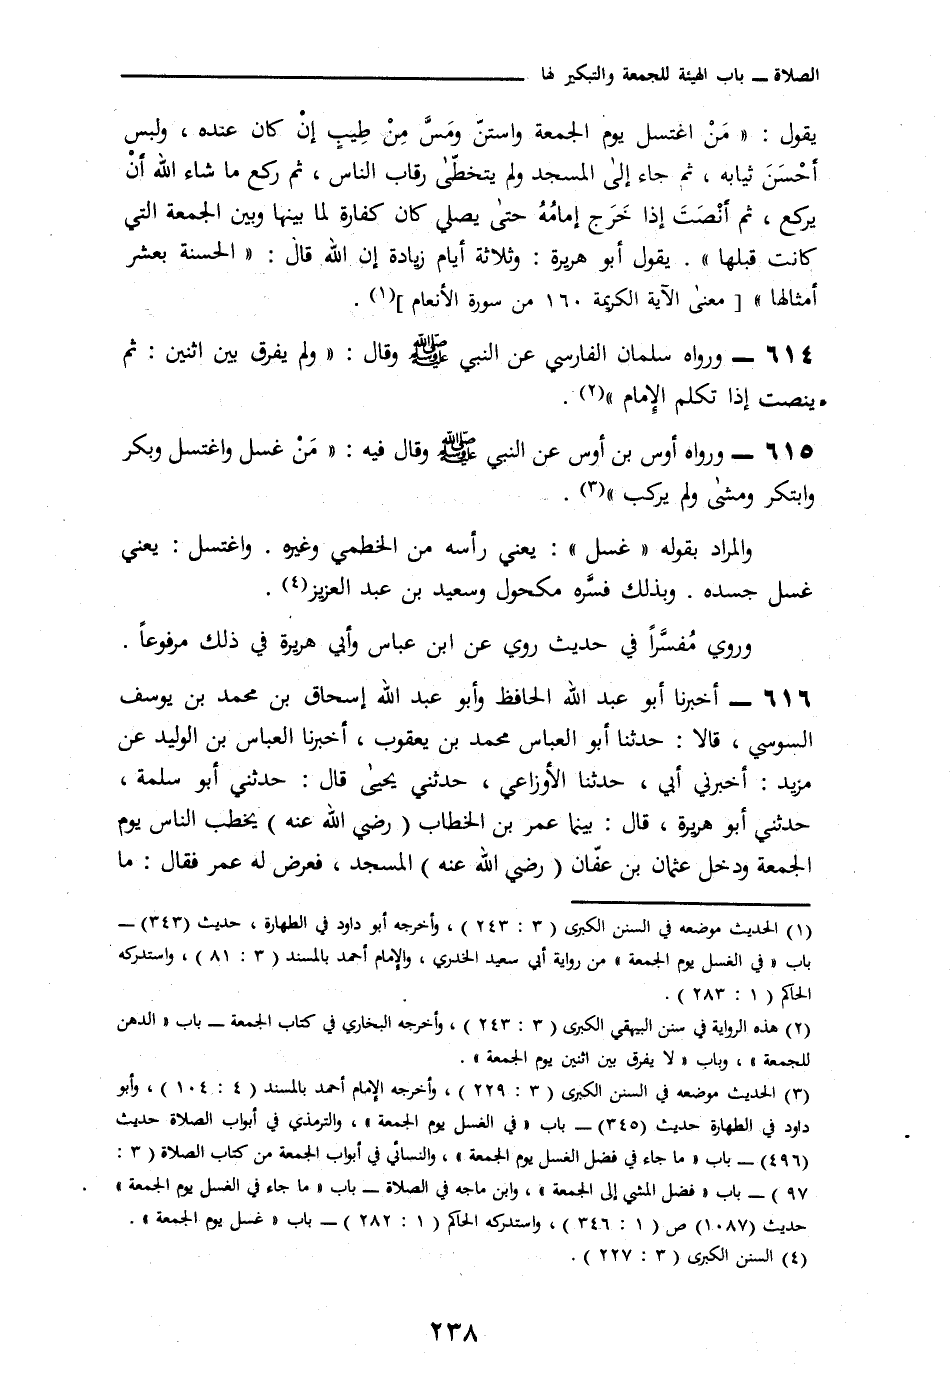 الصلاة ــ باب الهيئة للجمعة والتبكير لها
يقول : « مَنْ اغتسل يوم الجمعة واستنّ ومَسَّ مِنْ طِيبٍ إنْ كان عنده ، ولبس
أحْسَنَ ثيابه ، ثم جاء إلىٰ المسجد ولم يتخطّىٰ رقاب الناس ، ثم ركع ما شاء الله أنْ
يركع ، ثم أنْصَتَ إذا خَرَج إمامُهُ حتىٰ يصلي كان كفارة لما بينها وبين الجمعة التي
كانت قبلها » . يقول أبو هريرة : وثلاثة أيام زيادة إن الله قال : « الحسنة بعشر
أمثالها » [ معنىٰ الآية الكريمة ١٦٠ من سورة الأنعام ](١) .
٦١٤ ــ ورواه سلمان الفارسي عن النبي ﷺ وقال : « ولم يفرق بين اثنين : ثم
ينصت إذا تكلم الإمام »(٢) .
٦١٥ ــ ورواه أوس بن أوس عن النبي ﷺ وقال فيه : « مَنْ غسل واغتسل وبكر
وابتكر ومشىٰ ولم يركب »(٣) .
والمراد بقوله « غسل » : يعني رأسه من الخطمي وغيره . واغتسل : يعني
غسل جسده . وبذلك فسَّره مكحول وسعيد بن عبد العزيز(٤) .
وروي مُفسَّراً في حديث روي عن ابن عباس وأبي هريرة في ذلك مرفوعاً .
٦١٦ ــ أخبرنا أبو عبد الله الحافظ وأبو عبد الله إسحاق بن محمد بن يوسف
السوسي ، قالا : حدثنا أبو العباس محمد بن يعقوب ، أخبرنا العباس بن الوليد عن
مزيد : أخبرني أبي ، حدثنا الأوزاعي ، حدثني يحيىٰ قال : حدثني أبو سلمة ،
حدثني أبو هريرة ، قال : بينما عمر بن الخطاب ( رضي الله عنه ) يخطب الناس يوم
الجمعة ودخل عثمان بن عفّان ( رضي الله عنه ) المسجد ، فعرض له عمر فقال : ما
(١) الحديث موضعه في السنن الكبرى ( ٣ : ٢٤٣ ) ، وأخرجه أبو داود في الطهارة ، حديث (٣٤٣) ــ
باب « في الغسل يوم الجمعة » من رواية أبي سعيد الخدري ، والإمام أحمد بالمسند ( ٣ : ٨١ ) ، واستدركه
الحاكم ( ١ : ٢٨٣ ) .
(٢) هذه الرواية في سنن البيهقي الكبرى ( ٣ : ٢٤٣ ) ، وأخرجه البخاري في كتاب الجمعة ــ باب « الدهن
للجمعة » ، وباب « لا يفرق بين اثنين يوم الجمعة » .
(٣) الحديث موضعه في السنن الكبرى ( ٣ : ٢٢٩ ) ، وأخرجه الإمام أحمد بالمسند ( ٤ : ١٠٤ ) ، وأبو
داود في الطهارة حديث (٣٤٥) ــ باب « في الغسل يوم الجمعة » ، والترمذي في أبواب الصلاة حديث
(٤٩٦) ــ باب « ما جاء في فضل الغسل يوم الجمعة » ، والنسائي في أبواب الجمعة من كتاب الصلاة ( ٣ :
٩٧ ) ــ باب « فضل المشي إلى الجمعة » ، وابن ماجه في الصلاة ــ باب « ما جاء في الغسل يوم الجمعة »
حديث (١٠٨٧) ص ( ١ : ٣٤٦ ) ، واستدركه الحاكم ( ١ : ٢٨٢ ) ــ باب « غسل يوم الجمعة » .
(٤) السنن الكبرى ( ٣ : ٢٢٧ ) .
٢٣٨